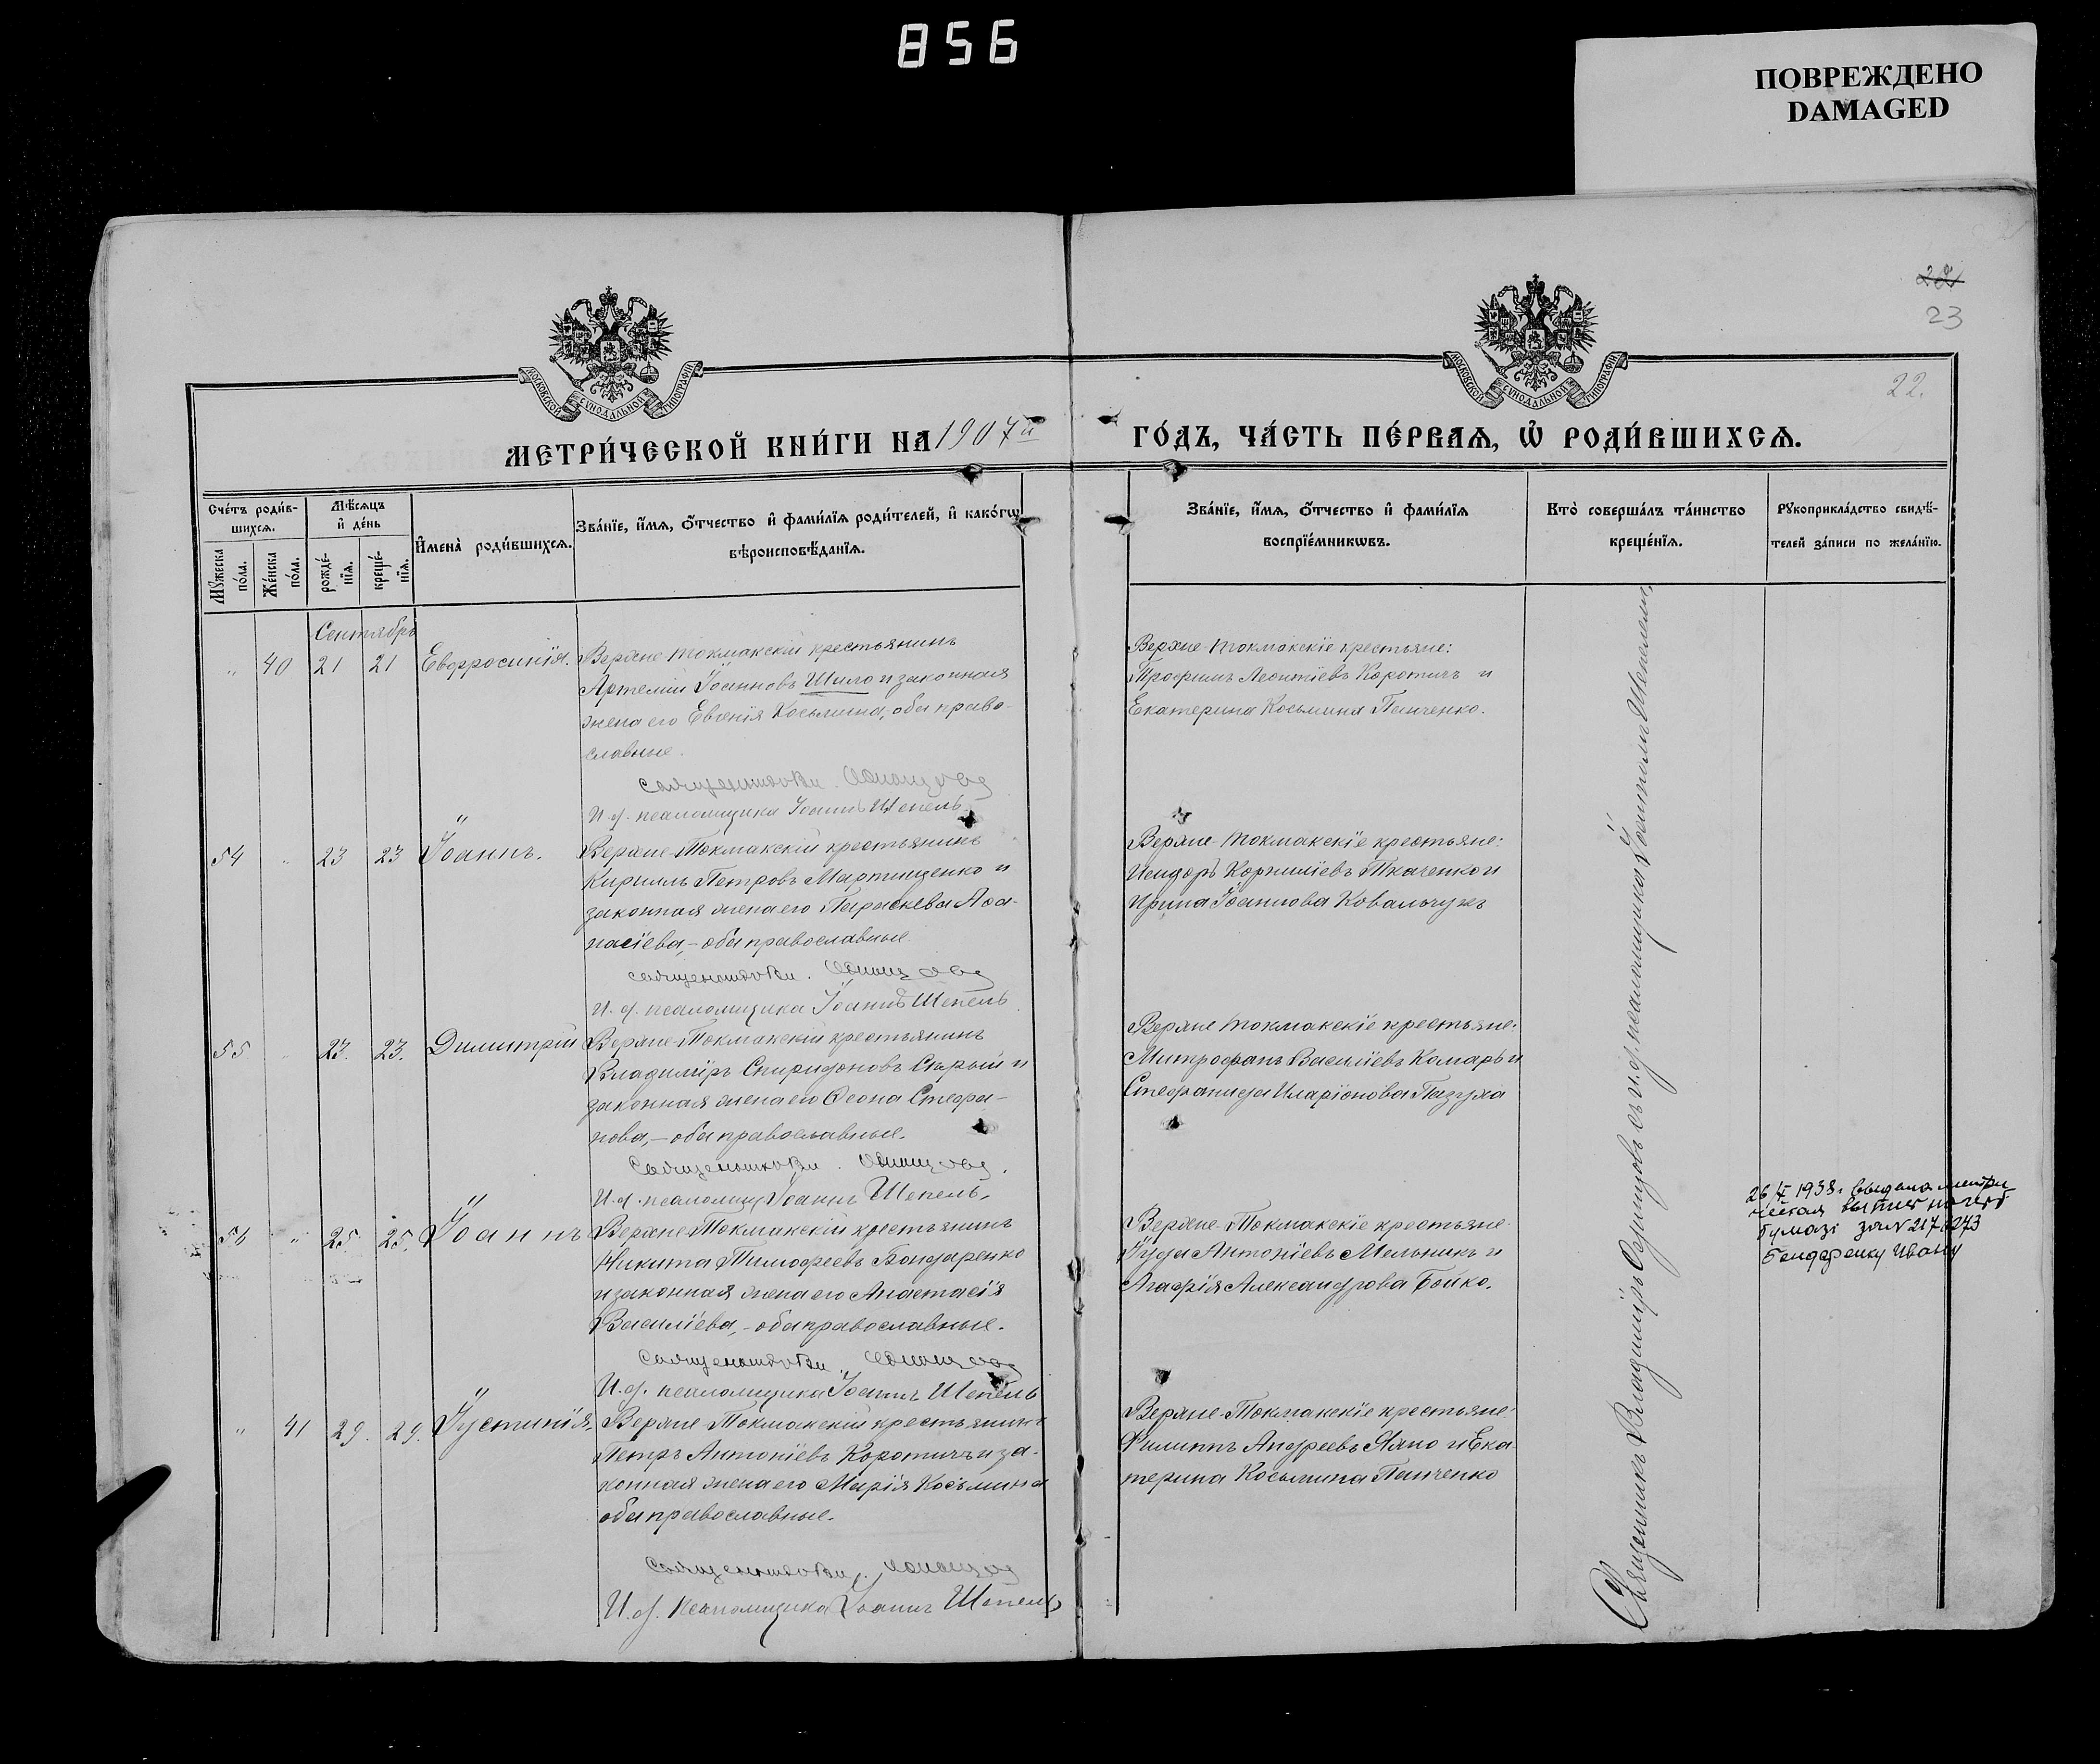 856
ПОВРЕЖДЕНО
DAMAGED
22
23
22.
МОСКОВСКОЙ СѴНОДАЛЬНОЙ ТИПОГРАФІИ
МОСКОВСКОЙ СѴНОДАЛЬНОЙ ТИПОГРАФІИ
МЕТРИ́ЧЕСКОЙ КНИ́ГИ НА 1907й
ГО́ДЪ, ЧА́СТЬ ПЕ́РВАѦ, Ѡ РОДИ́ВШИХСѦ.
Сче́тъ роди́в-
шихсѧ.
Мѣ́сѧцъ
и де́нь
Мꙋ́жеска
по́ла.
Же́нска
по́ла.
рожде́-
нїѧ.
креще́-
нїѧ.
Имена̀ роди́вшихсѧ.
Зва́нїе, и́мѧ, о́тчество и фами́лїѧ роди́телей, и како́гѡ
вѣроисповѣ́данїѧ.
Зва́нїе, и́мѧ, о́тчество и фами́лїѧ
воспрїе́мникѡвъ.
Кто̀ соверша́лъ та́инство
креще́нїѧ.
Рꙋкоприкла́дство свидѣ́-
телей за́писи по жела́нїю.
Сентябрь
" 40 21 21 Евфросинія.
Верхне-Токмакскій крестьянинъ
Артемій Іоанновъ Шило и законная
жена его Евгенія Косьмина, оба право-
славные.
И. д. псаломщика Іоаннъ Шепель
Верхне-Токмакскіе крестьяне:
Трофимъ Леонтіевъ Коротичъ и
Екатерина Косьмина Панченко.
54 " 23 23 Іоаннъ.
Верхне-Токмакскій крестьянинъ
Кириллъ Петровъ Мартыщенко и
законная жена его Параскева Аѳа-
насіева, - оба православные.
И. д. псаломщика Іоаннъ Шепель
Верхне-Токмакскіе крестьяне:
Исидоръ Корниліевъ Ткаченко и
Ирина Іоаннова Ковальчукъ
55 23. 23. Димитрій
Верхне-Токмакскій крестьянинъ
Владиміръ Спиридоновъ Старый и
законная жена его Ѳеона Стефа-
нова, - оба православные.
И. д. псаломщ Іоаннъ Шепель.
Верхне Токмакскіе крестьяне:
Митрофанъ Василіевъ Комаръ и
Стефанида Иларіонова Пазуха
56 " 25. 25. Іоаннъ
Верхне-Токмакскій крестьянинъ
Никита Тимофеевъ Бондаренко
и законная жена его Анастасія
Василіева, - оба православные.
И. д. псаломщика Іоаннъ Шепель
Верхне-Токмакскіе крестьяне
Іуда Антоніевъ Мельникъ и
Агафія Александрова Бойко.
1938г. выдана метри
ческая
Ивану
" 41 29. 29. Іустинія,
Верхне-Токмакскій крестьянинъ
Петръ Антоніевъ Коротичъ и за-
конная жена его Марія Косьмина
оба православные.
И. д. псаломщика Іоаннъ Шепель
Верхне-Токмакскіе крестьяне
Филиппъ Андреевъ Яхно и Ека-
терина Косьмина Панченко
Священникъ Владиміръ Одинцовъ съ и. д. псаломщика Іоанномъ Шепелемъ